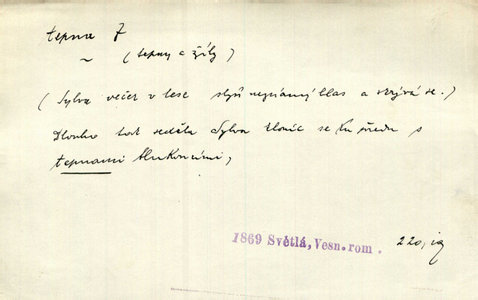 tepna f
~ (tepny a žíly)
(Sylva večer v lese slyší neznámý hlas a skrývá se.)
Dlouho tak seděla Sylva kloníc se ku předu s
tepnami tlukoucími,
1869 Světlá, Vesn. rom. 220,